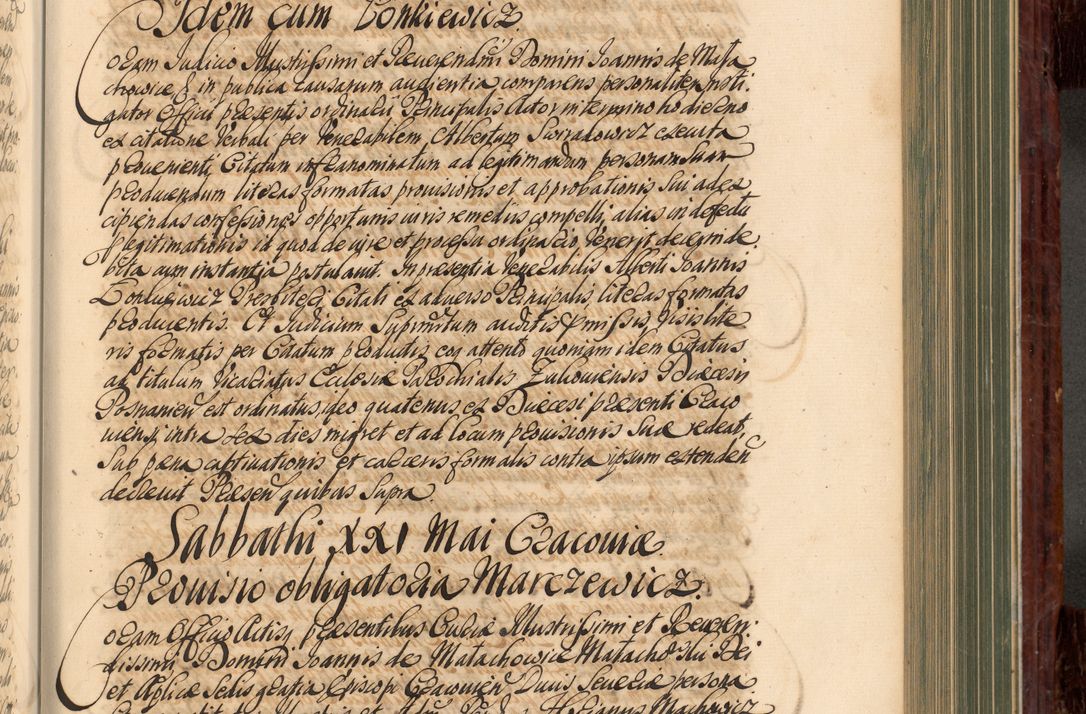 Idem cum Lonkiewicz
Coram Judicio Illustrissimi et Reverendmi Domini Joannis de Mała
chowice & in publica causarum audientia comparens personaliter Insti
gator Officii praesentis ordinarii Principalis Actor in termino hodierno
ex citatione verbali per Venerabilem Albertum Swiradowicz executa
proveniente Citatum infranominatum ad legitimandum personam suam
producendum literas formatas provisionis et approbationis sui ad ex
cipiendas confessiones opportunis iuris remediis compelli, alias in defectu
legitimationis id quod de iure et processu ordinario venerit decerni de
bita cum instantia postulavit. In praesentia Venerabilis Alberti Joannis
Lonkiewicz Presbiteri Citati ex adverso Principalis literas formatas
producentis. Et Judicium Suprmtum auditis pmissis, visis lite
ris formatis per Citatum productis eoq attento quoniam idem Citatus
ad titulum Vicariatus Ecclesiae Parochialis Zulioviensis Diaecesis
Posnanien est ordinatus, ideo quatenus ex Diaecesi praesenti Craco
viensi intra sex dies migret et ad locum provisionis suae redeat,
sub paena captivationis et carceris formalis contra ipsum extenden
decrevit Praesen quibus supra
Sabbathi XXI Mai Cracoviae
Provisio obligatoria Marczewicz
Coram Officio Actisq praesentibus Curiae Illustrissimi et Reveren:
dissimi Domini Joannis de Małachowice Małachowski Dei
et Aplicae Sedis gratia Episcopi Cracovien Ducis Severiae persona